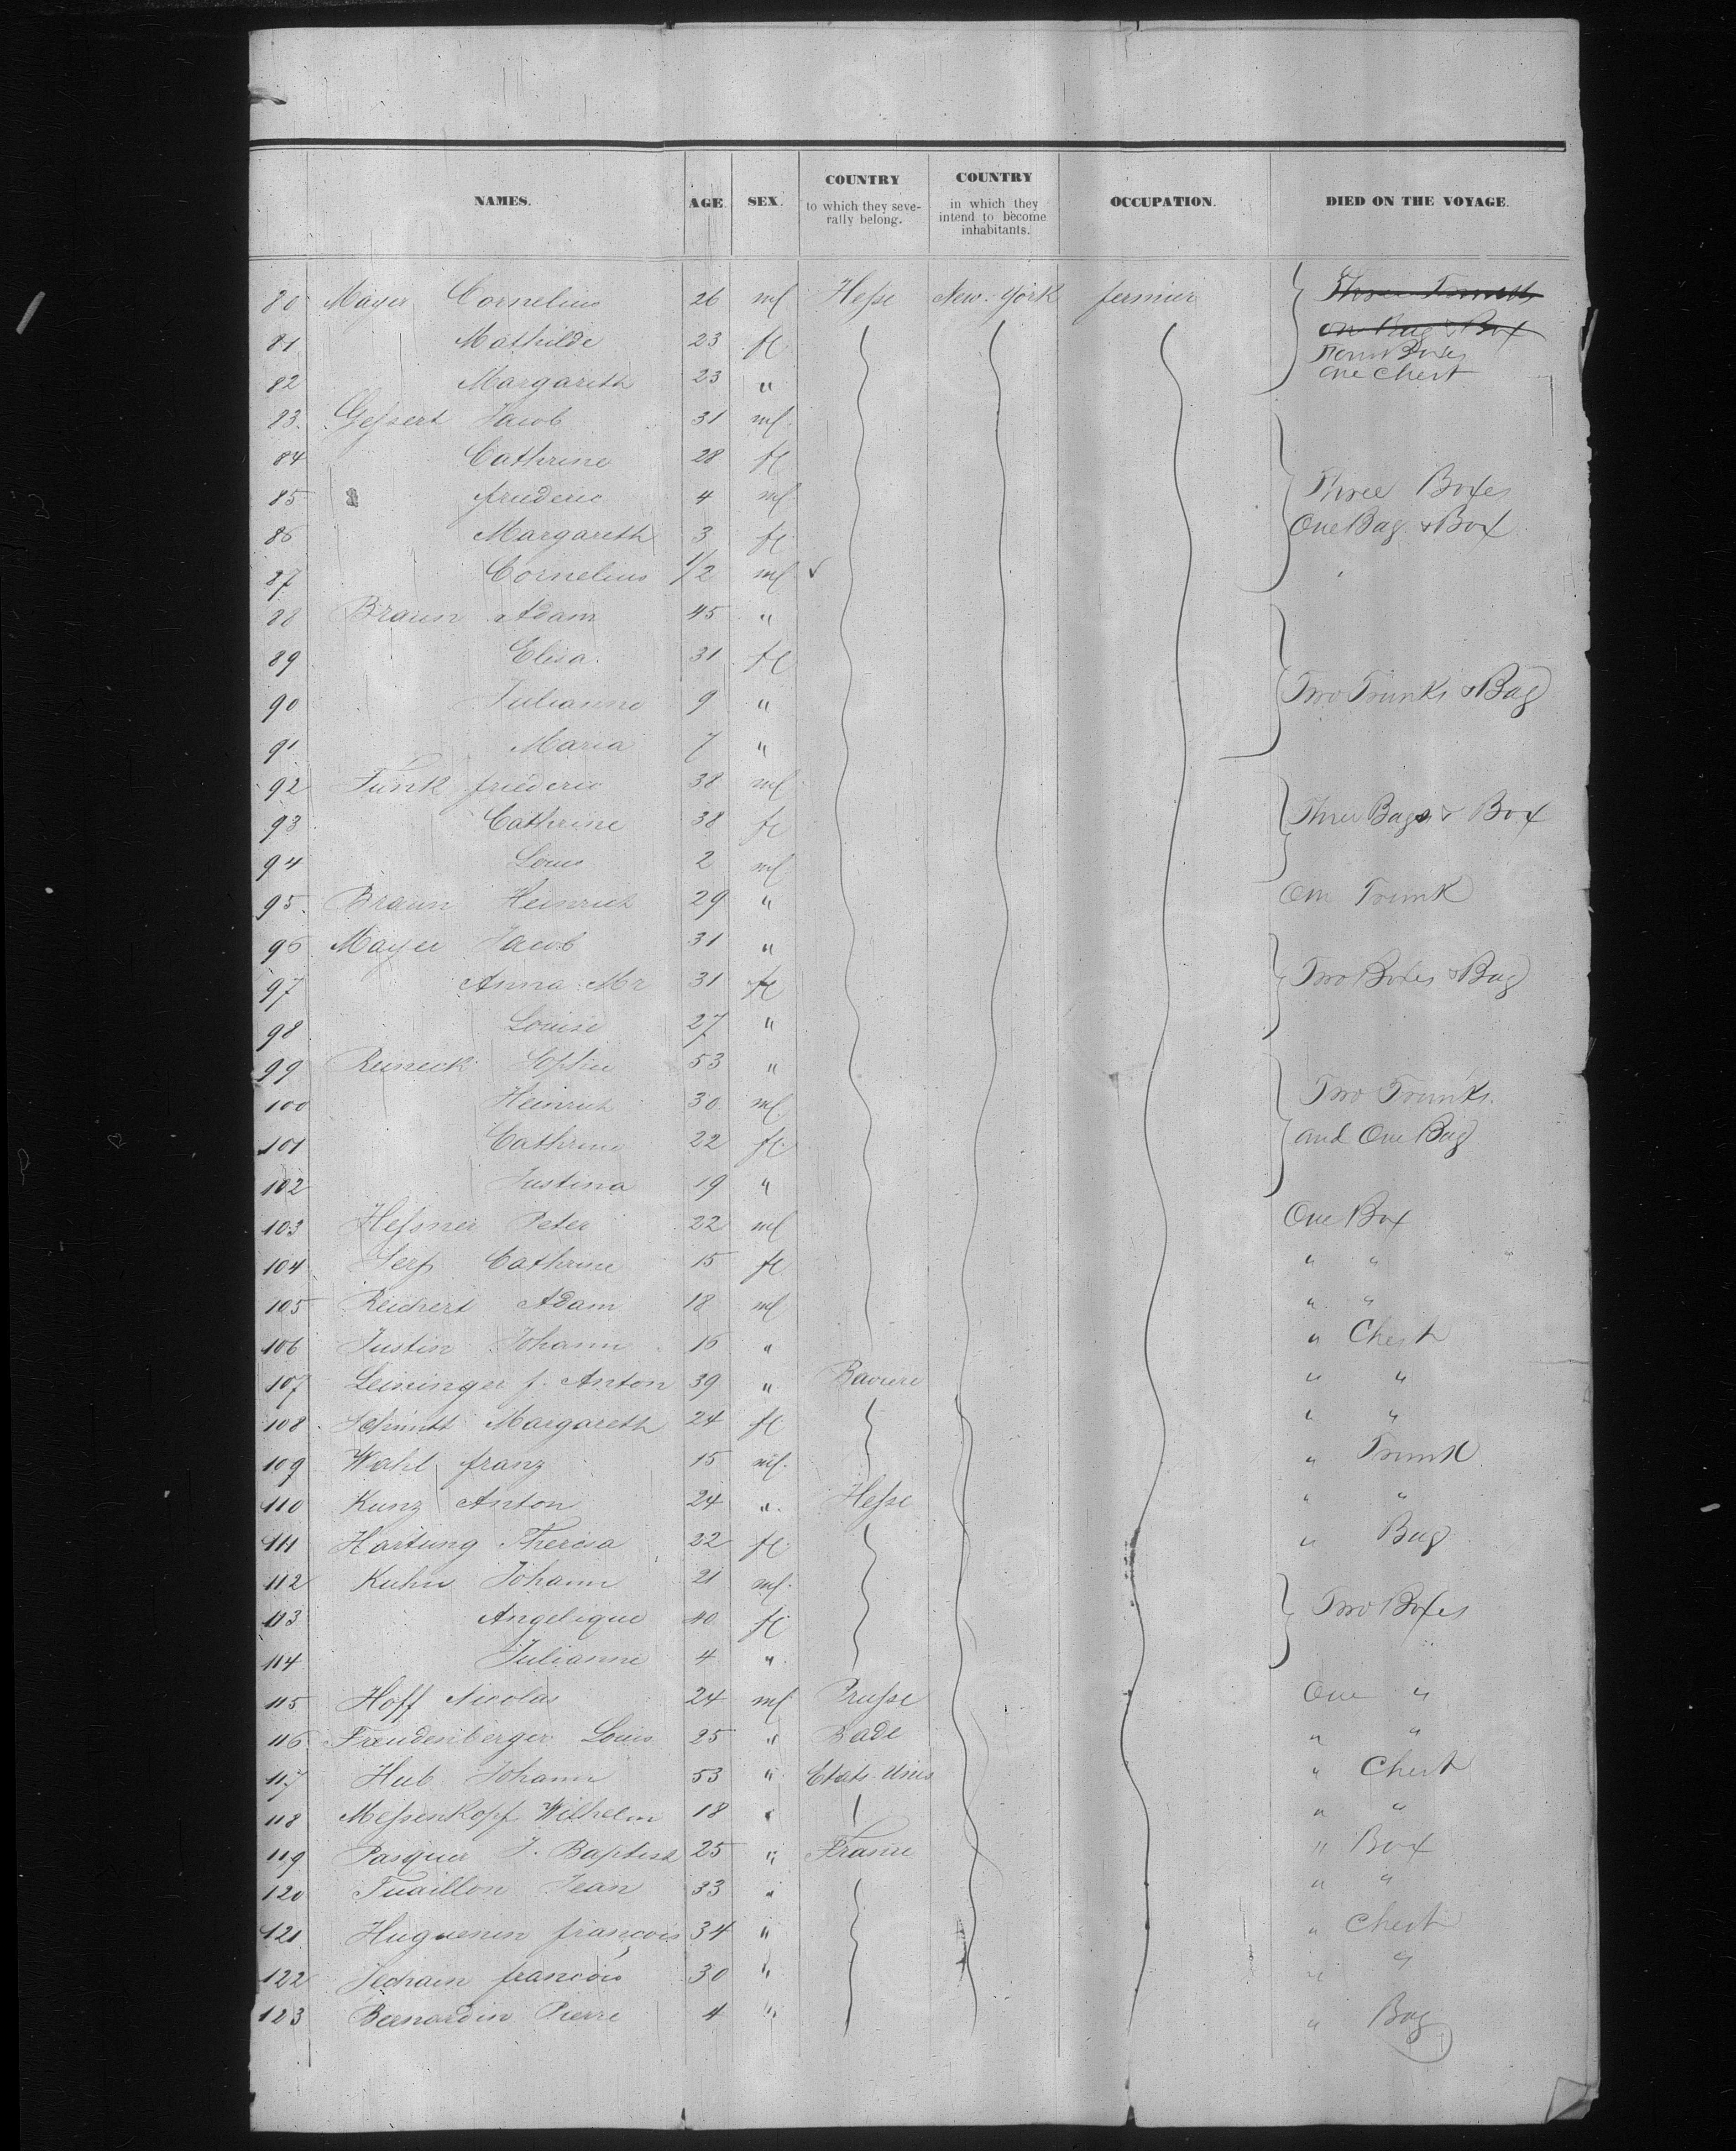 NAMES. AGE. SEX. COUNTRY to which they severally belong. COUNTRY in which they intend to become inhabitants. OCCUPATION. DIED ON THE VOYAGE.
80 Mayer Cornelius 26 ml Hesse New-York fermier Three Trunks
81 Mathilde 23 fl one Bag & Box
Four Boxes
82 Margareth 23 " One Chest
83. Gessert Jacob 31 ml
84 Cathrine 28 fl
85 friederic 4 ml Three Boxes
86 Margareth 3 fl One Bag & Box
87 Cornelius 1/2 ml ✓
88 Braun Adam 45 "
89 Elisa 31 fl
90 Julianne 9 " Two Trunks & Bag
91 Maria 7 "
92 Funk friederic 38 ml
93 Cathrine 38 fl Three Bags & Box
94 Louis 2 ml
95. Braun Heinrich 29 " One Trunk
96 Mayer Jacob 31 "
97 Anna Mr 31 fl Two Boxes & Bag
98 Louise 27 "
99 Reineck Sophie 53 "
100 Heinrich 30 ml Two Trunks
101 Cathrine 22 fl and One Bag
102 Justina 19 "
103 Hessner Peter 22 ml One Box
104 Serf Cathrine 15 fl " "
105 Reichert Adam 18 ml " "
106 Justin Johann 16 " " Chest
107 Leininger f. Anton 39 " Baviere " "
108 Schmitt Margareth 24 fl " "
109 Wahl franz 15 ml " Trunk
110 Kunz Anton 24 " Hesse " "
111 Hartung Theresa 22 fl " Bag
112 Kuhn Johann 21 ml
113 Angelique 40 fl Two Boxes
114 Julianne 4 "
115 Hoff Nicolas 24 ml Prusse One "
116 Freudenberger Louis 25 " Bade " "
117 Hub Johann 53 " Etats-Unis " Chest
118 Messenkopf Wilhelm 18 " " "
119 Pasquier J. Baptist 25 " France " Box
120 Tuaillon Jean 33 " " "
121 Huguenin françois 34 " " Chest
122 françois 30 " " "
123 Bernardin Pierre 4 " " Bag